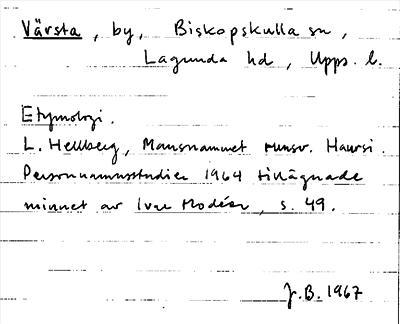 Värsta, by, Biskopskulla sn,
Lagunda hd, Upps. l.
Etymologi.
L. Hellberg, Mansnamnet runsv. Haursi.
Personnamnsstudier 1964 tillägnade
minnet av Ivar Modéer, s. 49.
J.B. 1967